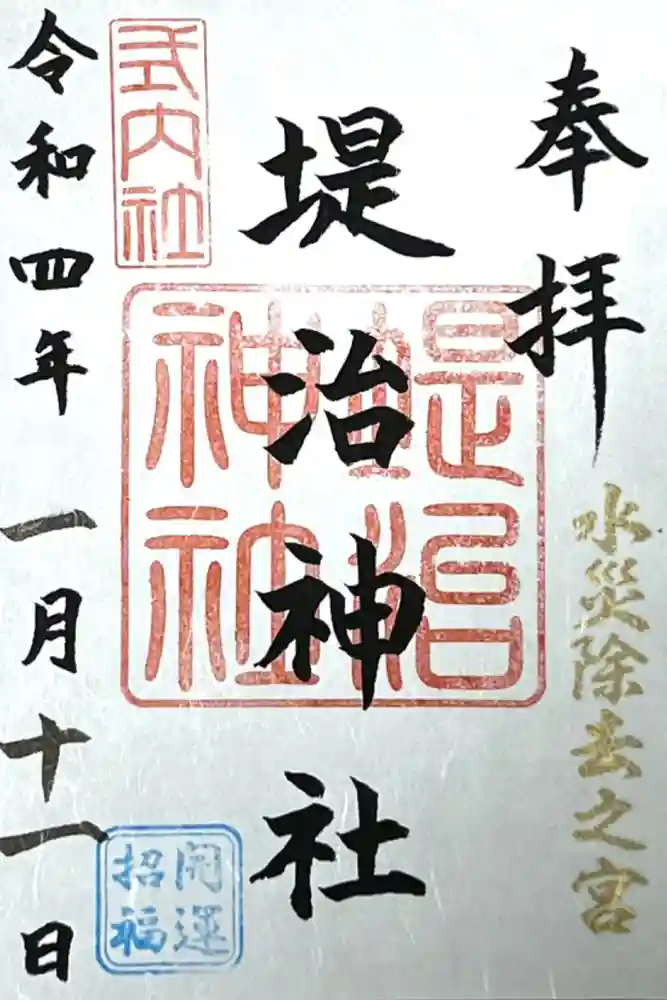 奉拝
水災除去之宮
堤治神社
堤治
神社
式内社
開運
招福
令和四年 一月十一日